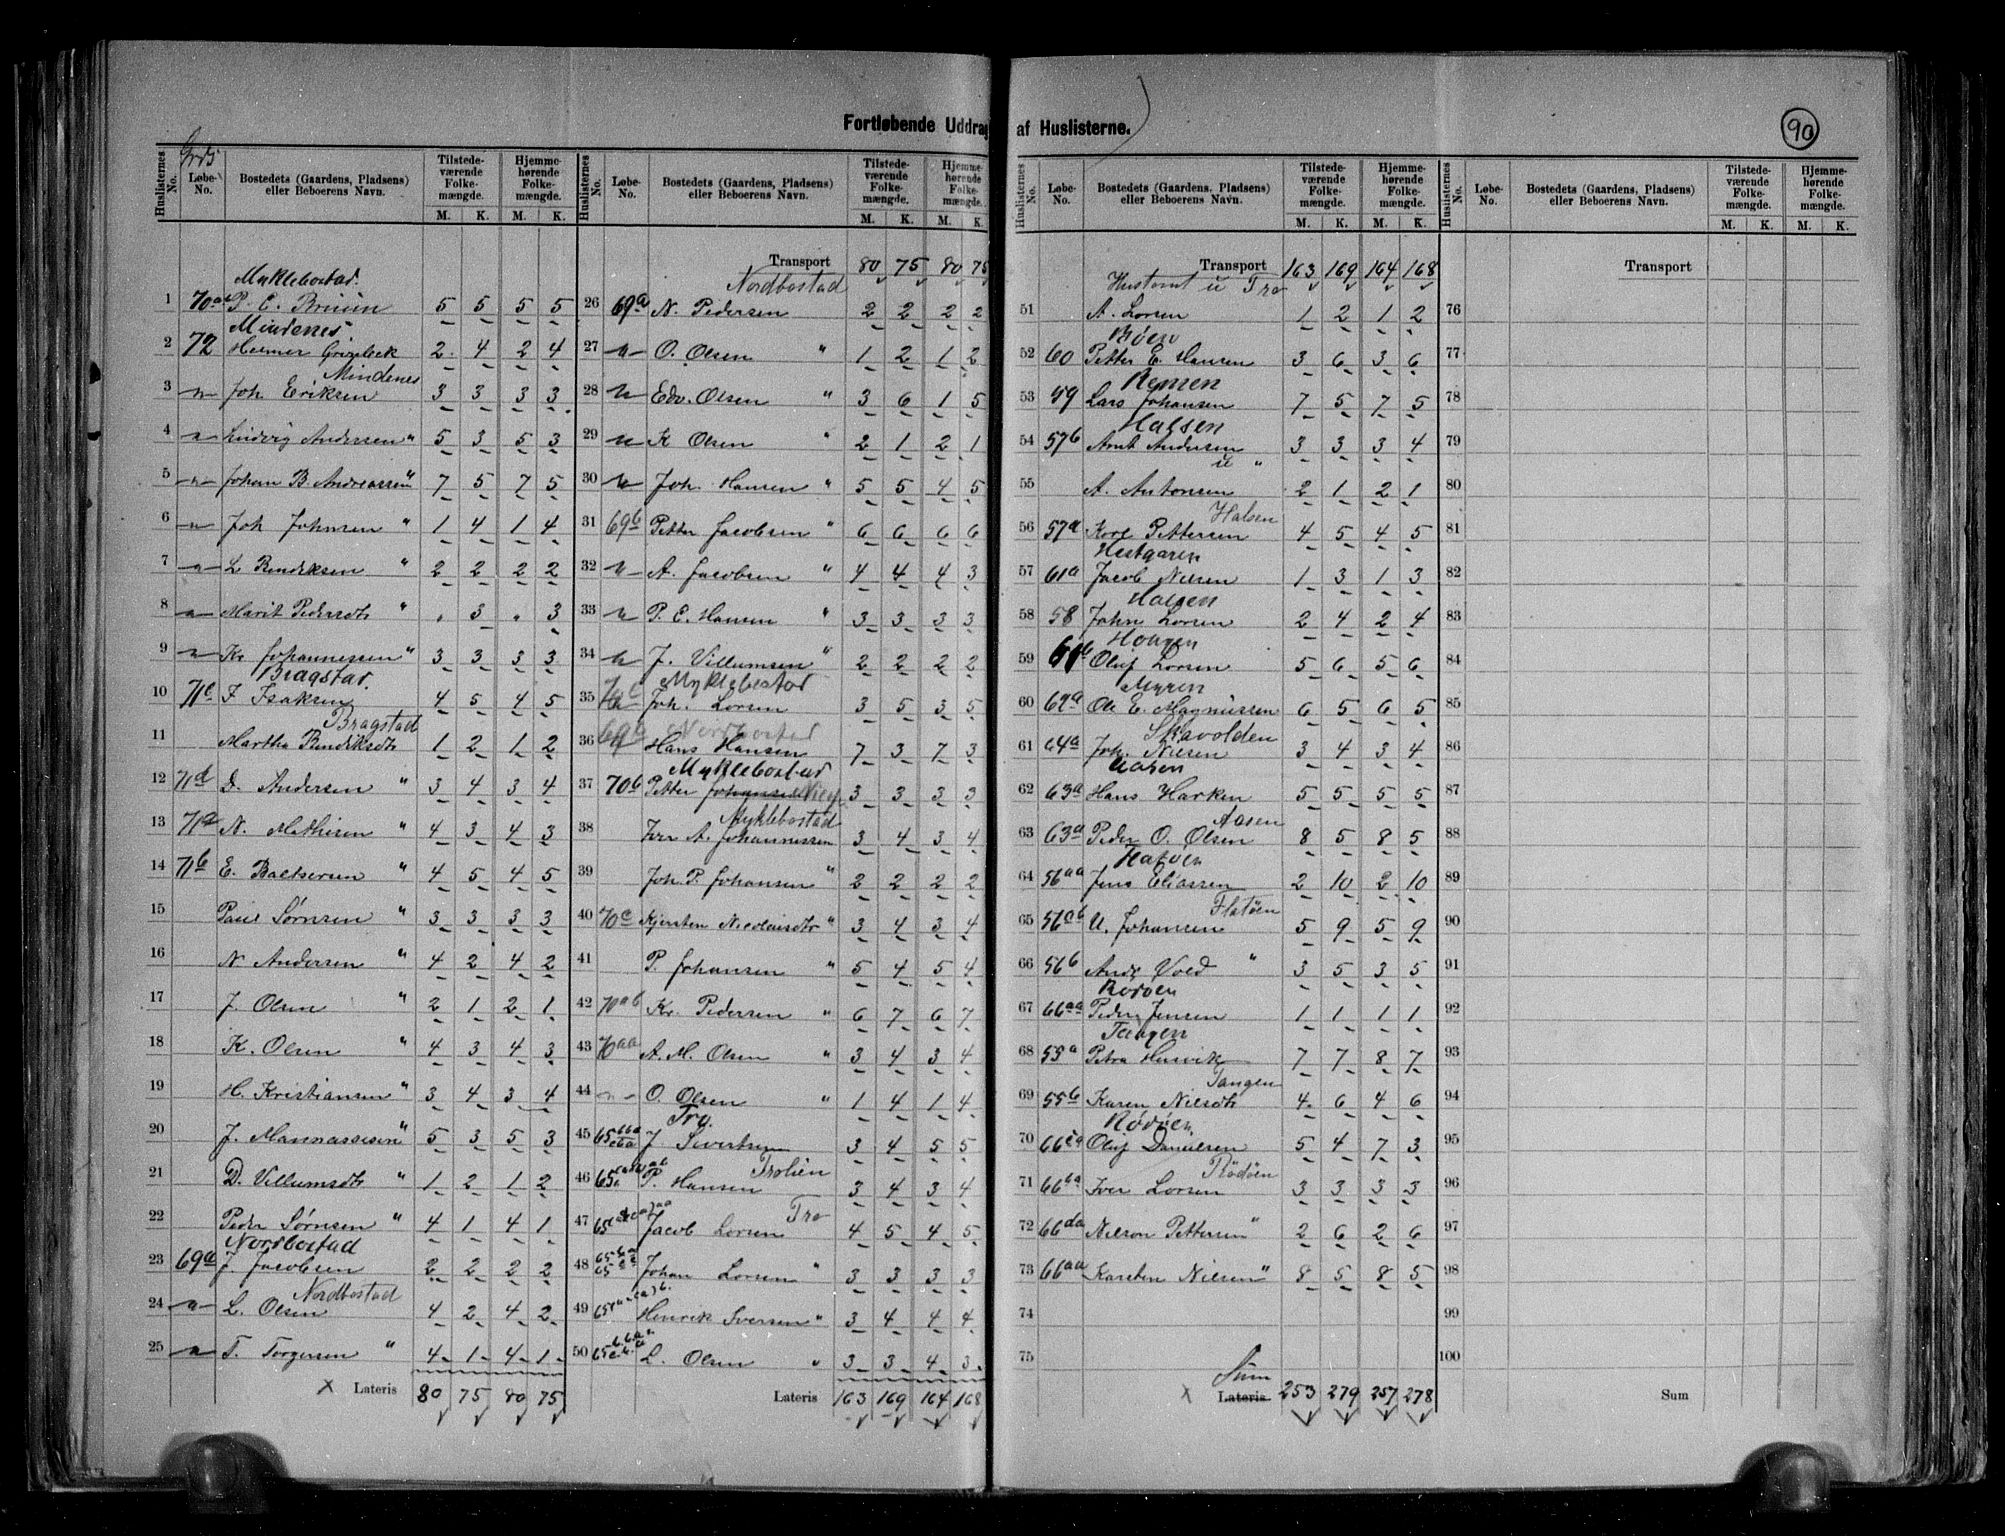 Fortløbende Uddrag af Huslisterne.
90
Grds
Huslisternes No. Løbe-No. Bostedets (Gaardens, Pladsens) eller Beboerens Navn. Tilstedeværende Folkemængde. M. K. Hjemmehørende Folkemængde. M. K.
Myklebostad.
1 70a P. E. Bruun 5 5 5 5
Mindenes
2 72 Heimer Grønbek 2 4 2 4
Mindenes
3 -"- Joh Eriksen 3 3 3 3
4 -"- Ludvig Andersen " 5 3 5 3
5 -"- Johan B. Andreassen " 7 5 7 5
6 -"- Joh Johnsen " 1 4 1 4
7 -"- L Bendiksen " 2 2 2 2
8 -"- Marit Pedersdtr " " 3 " 3
9 -"- Kr Johannessen " 3 3 3 3
Bragstad.
10 71c F Isaksen 4 5 4 5
Bragstad
11 Martha Bendiksdtr 1 2 1 2
12 71d D. Andersen " 3 4 3 4
13 71a N. Mathisen " 4 3 4 3
14 71b E. Baltsersen " 4 5 4 5
15 Paul Sørnsen " 3 3 3 3
16 N Andersen " 4 2 4 2
17 J. Olsen " 2 1 2 1
18 K. Olsen " 4 3 4 3
19 H. Kristiansen " 3 4 3 4
20 J. Mannassesen " 5 3 5 3
21 D. Villumsdtr " 1 2 1 2
22 Peder Sørnsen " 4 1 4 1
Nordbostad
23 69a J. Jacobsen 2 2 2 2
Nordbostad
24 -"- L. Olsen 4 2 4 2
25 -"- T. Torgersen " 4 1 4 1
x Lateris 80 75 80 75
Huslisternes No. Løbe-No. Bostedets (Gaardens, Pladsens) eller Beboerens Navn. Tilstedeværende Folkemængde. M. K. Hjemmehørende Folkemængde. M. K.
Transport 80 75 80 75
Nordbostad
26 69a N. Pedersen 2 2 2 2
27 -"- O. Olsen " 1 2 1 2
28 -"- Edv. Olsen " 3 6 1 5
29 -"- K Olsen " 2 1 2 1
30 -"- Joh. Hansen " 5 5 4 5
31 69b Petter Jacobsen " 6 6 6 6
32 -"- A. Jacobsen " 4 4 4 3
33 -"- P. E. Hansen " 3 3 3 3
34 -"- J. Villumsen " 2 2 2 2
Myklebostad
35 70c Joh. Lorsen 3 5 3 5
69a Nordbostad
36 Hans Hansen 7 3 7 3
Myklebostad
37 70b Petter 3 3 3 3
Myklebostad
38 Iver A. Johannessen 3 4 3 4
39 Joh. P. Johansen " 2 2 2 2
40 70c Kjersten Nicolaisdtr " 3 4 3 4
41 P. Johansen " 5 4 5 4
42 70ab Kr. Pedersen " 6 7 6 7
43 70aa A. M. Olsen " 3 4 3 4
44 -"- O. Olsen " 1 4 1 4
Tro.
45 65 J Sivertsen 3 4 5 5
Trolien
46 65 P. Hansen 3 4 3 4
Tro
47 65 Jacob Lorsen 4 5 4 5
48 65 Johan Lorsen " 3 3 3 3
49 65 Henrik Iversen " 3 4 4 4
50 65 L. Olsen " 3 3 4 3
Lateris 163 169 164 168
Huslisternes No. Løbe-No. Bostedets (Gaardens, Pladsens) eller Beboerens Navn. Tilstedeværende Folkemængde. M. K. Hjemmehørende Folkemængde. M. K.
Transport 163 169 164 168
Hustomt u Tro
51 A. Lorsen 1 2 1 2
Bøen
52 60 Petter E. Hansen 3 6 3 6
Remen
53 59 Lars Johansen 7 5 7 5
Halsen
54 57b Arnt Andersen 3 3 3 4
u "
55 A. Antonsen 2 1 2 1
Halsen
56 57a Karl Pettersen 4 5 4 5
Hestgaren
57 61a Jacob Nielsen 1 3 1 3
Halsen
58 58 John Lorsen 2 4 2 4
Haugen
59 61b Oluf Lorsen 5 6 5 6
Myren
60 62a Ole E. Magnussen 6 5 6 5
Skavolden
61 64a Joh. Nilsen 3 4 3 4
Aasen
62 63a Hans Harken 5 5 5 5
Aasen
63 63a Peder O. Olsen 8 5 8 5
Flatøen
64 56aa Jens Eliassen 2 10 2 10
Flatøen
65 56ab U. Johansen 5 9 5 9
66 56b Andr Vold " 3 5 3 5
Rodøen
67 66aa Peder Jensen 1 1 1 1
Tangen
68 55a Petra Husvik 7 7 8 7
Tangen
69 55b Karen Nilsdtr 4 6 4 6
Rødøen
70 66ca Oluf Danielsen 5 4 7 3
Rødøen
71 66ba Iver Lorsen 3 3 3 3
72 66da Nilson Pettersen " 2 6 2 6
73 66aa Karsten Nilsen " 8 5 8 5
74
75
Sum
x Lateris 253 279 257 278
Huslisternes No. Løbe-No. Bostedets (Gaardens, Pladsens) eller Beboerens Navn. Tilstedeværende Folkemængde. M. K. Hjemmehørende Folkemængde. M. K.
Transport
76
77
78
79
80
81
82
83
84
85
86
87
88
89
90
91
92
93
94
95
96
97
98
99
100
Sum